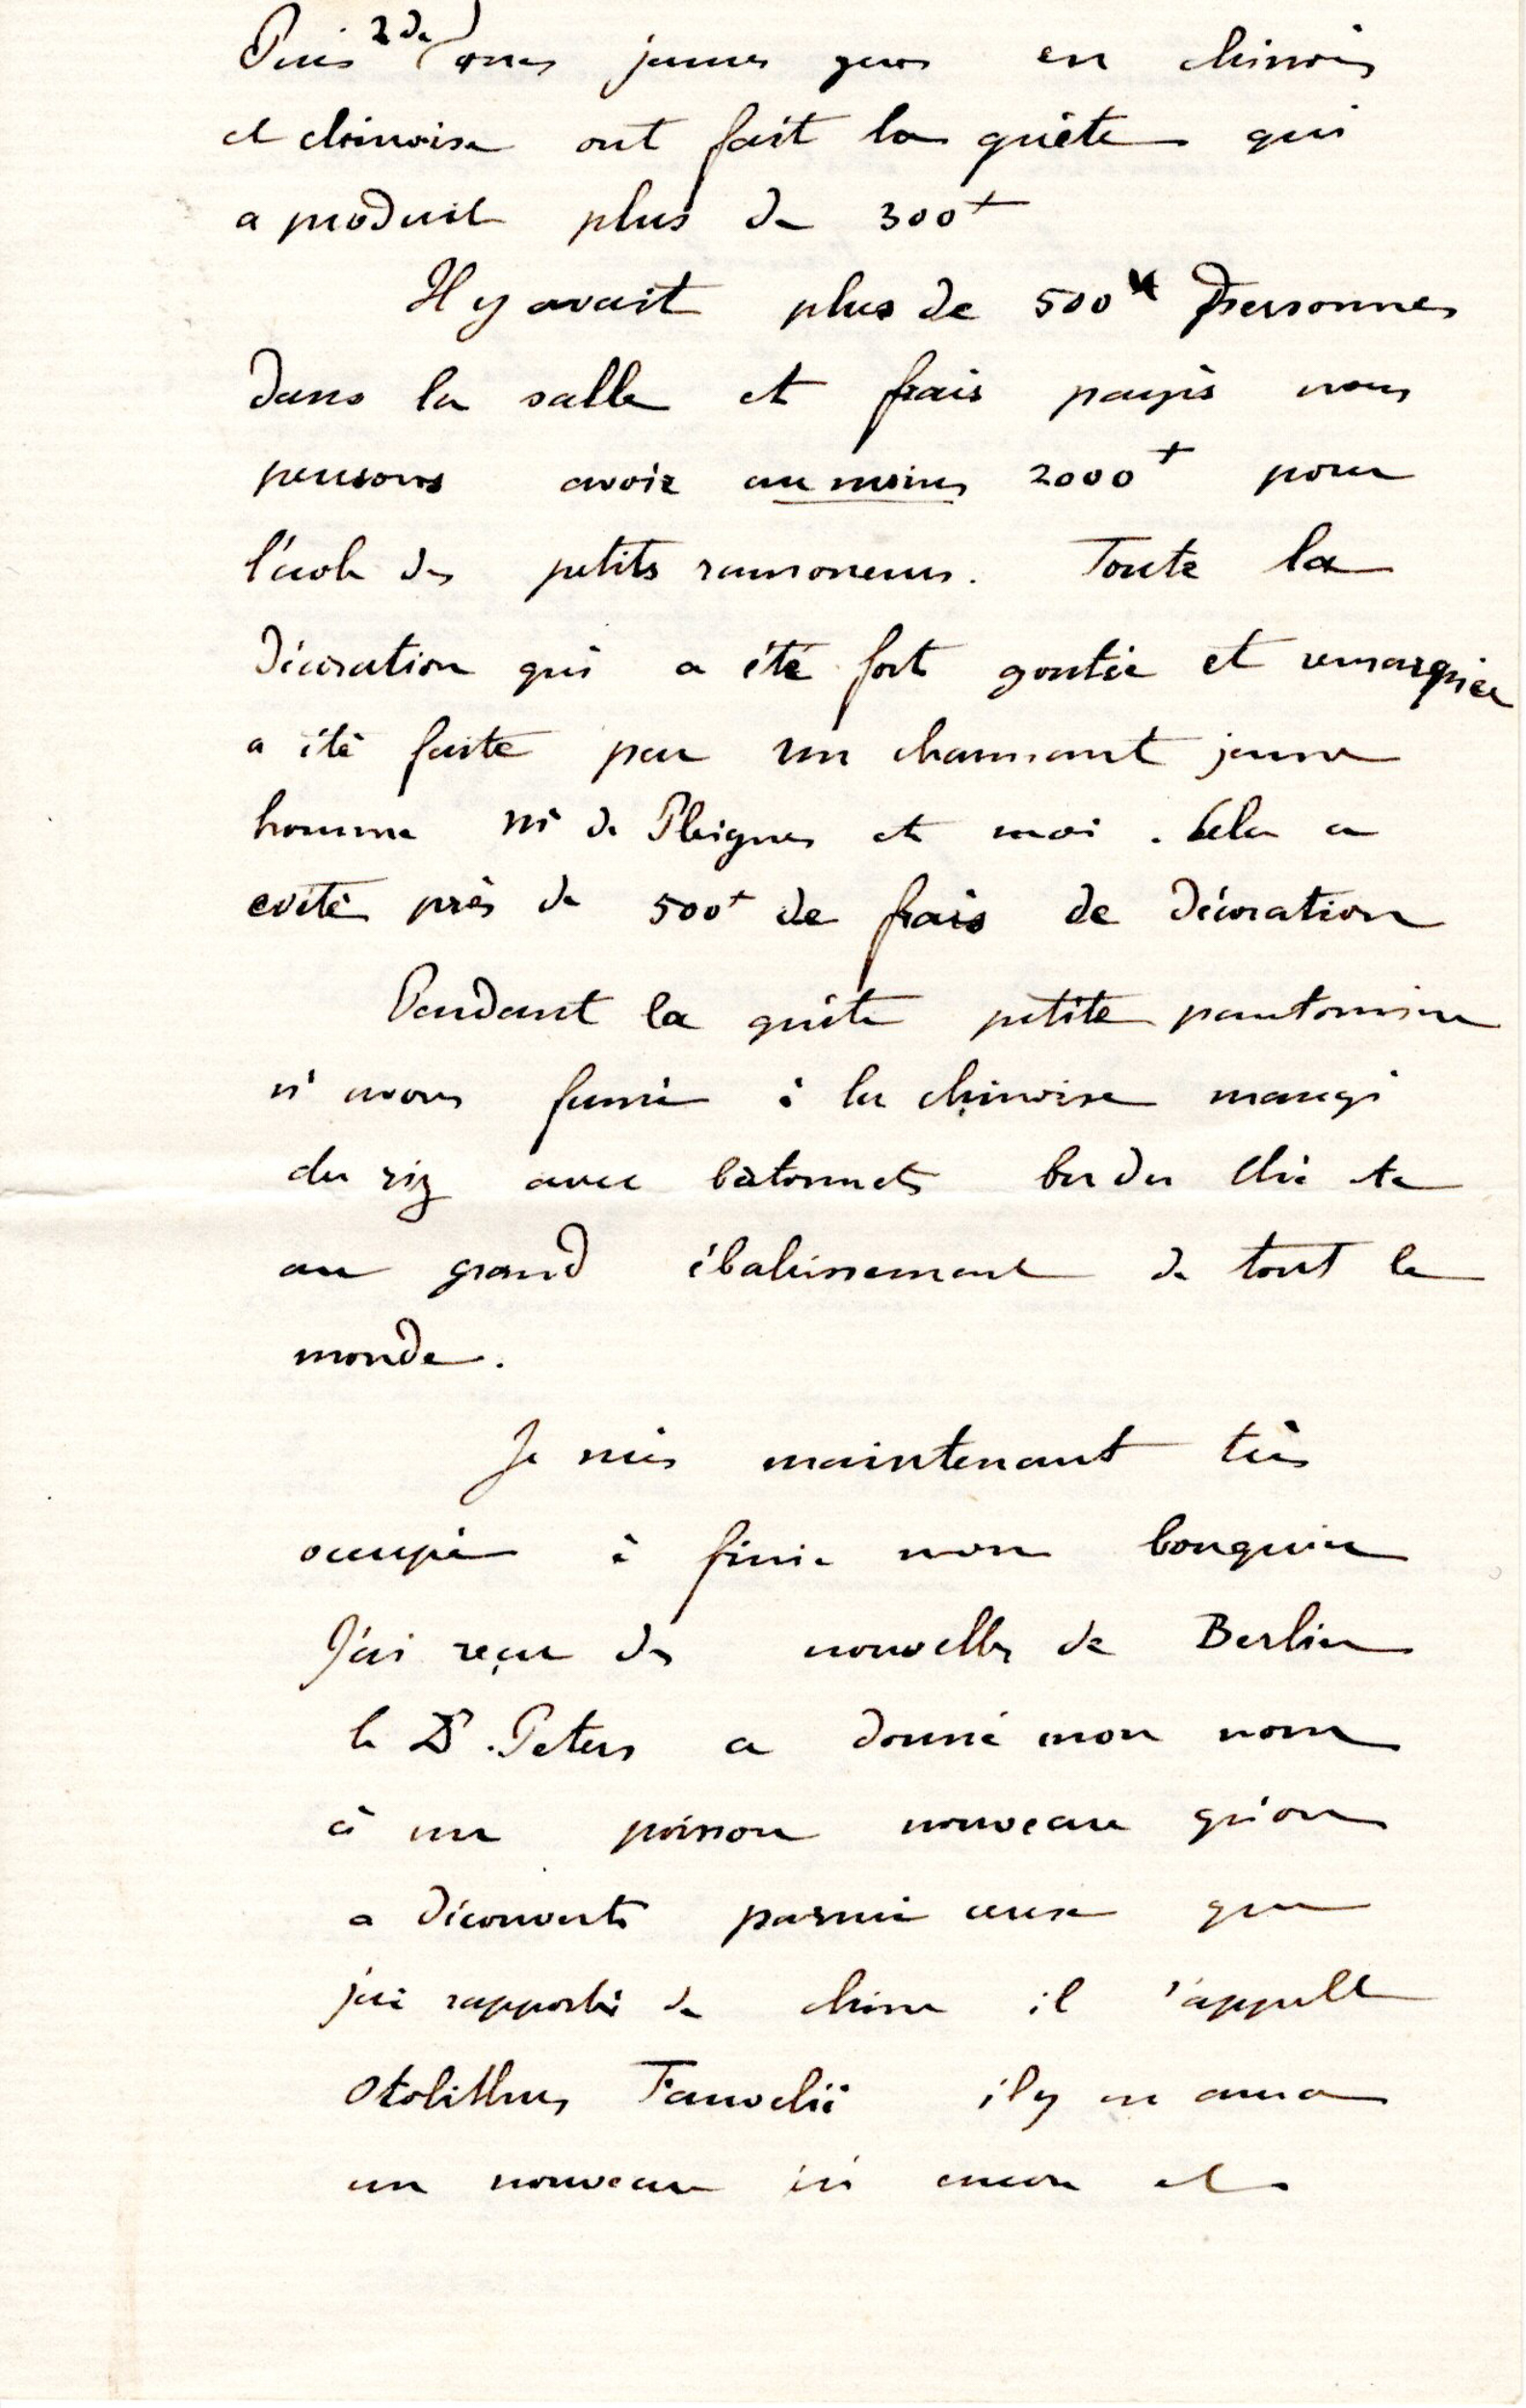 Puis 2 de mes jeunes gens en chinois
et chinoise ont fait la quête qui
a produit plus de 300+
Il y avait plus de 500 personnes
dans la salle et frais payés nous
pensons avoir au moins 2000+ pour
l'école des petits ramoneurs. Toute la
décoration qui a été fort goutée et remarquée
a été faite par un charmant jeune
homme Mr de Pleignes et moi. Cela a
evité près de 500+ de frais de décoration
Pendant la quête petite pantomime
ns avons fumé à la chinoise mangé
du riz avec bâtonnets bu du thé etc
au grand ébahissement de tout le
monde.
Je suis maintenant très
occupé à finir mon bouquin
J'ai reçu des nouvelles de Berlin
le Dr. Peters a donné mon nom
à un poisson nouveau qu'on
a découvert parmi ceux que
j'ai rapportés de chine il s'appelle
Otolithus Fauvelii il y en aura
un nouveau ici encore et